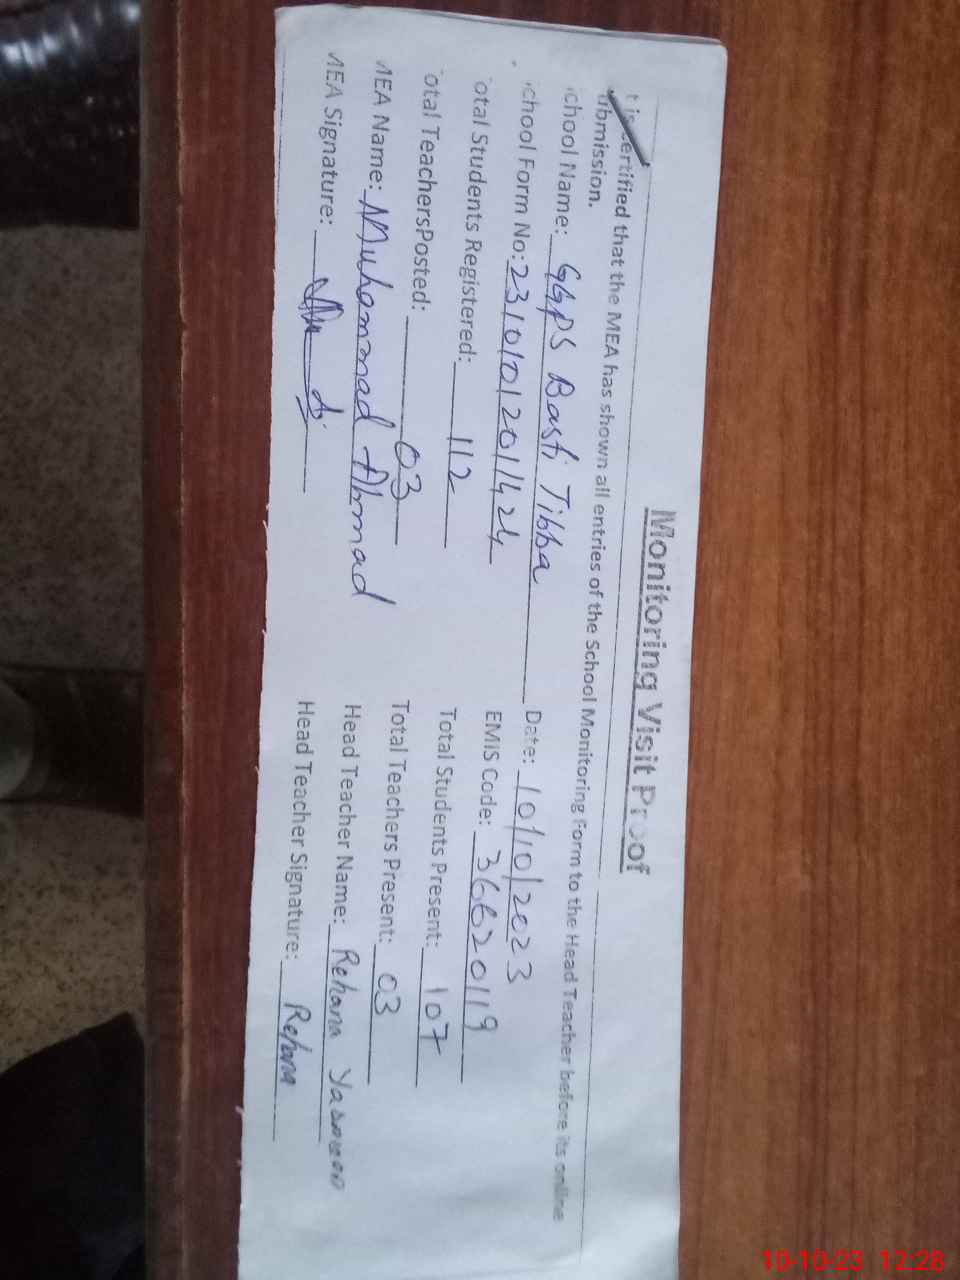 Monitoring Visit Proof
t is certified that the MEA has shown all entries of the School Monitoring Form to the Head Teacher before its online
ubmission.
chool Name: GGPS Basti Tibba Date: 10/10/2023
chool Form No: 23101012011424 EMIS Code: 36620119
otal Students Registered: 112 Total Students Present: 107
otal TeachersPosted: 03 Total Teachers Present: 03
MEA Name: Muhammad Ahmad Head Teacher Name: Rehana Yasmeen
MEA Signature: Head Teacher Signature: Rehana
10-10-23 12:28